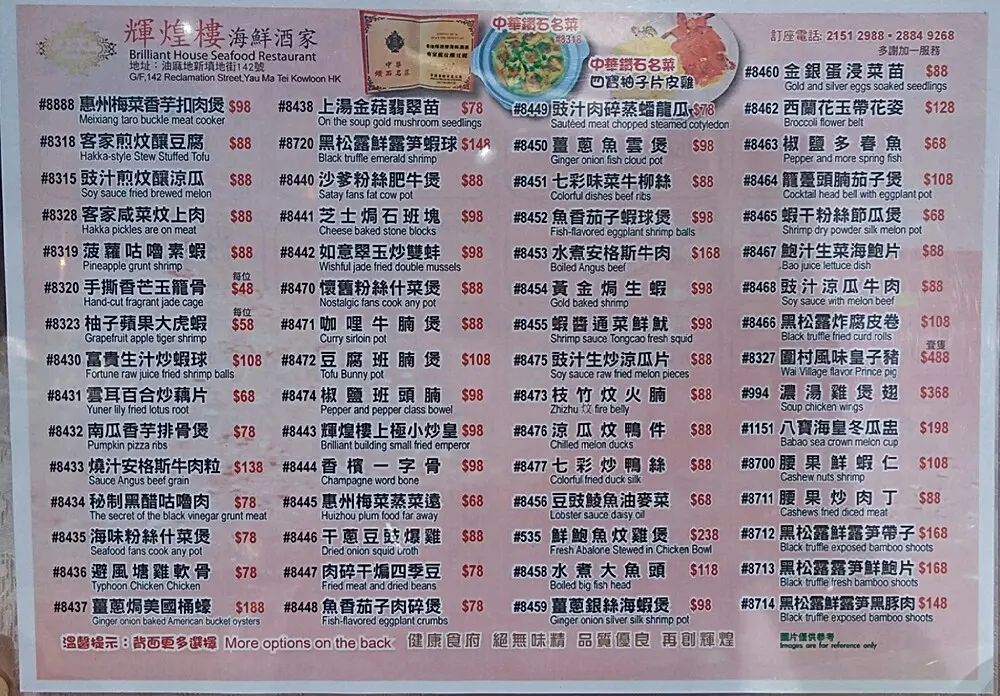 輝煌樓海鮮酒家
Brilliant House Seafood Restaurant
地址：油麻地新填地街142號
G/F,142 Reclamation Street,Yau Ma Tei Kowloon HK
中華
鑽石名菜
中華鑽石名菜
#8318
中華鑽石名菜
四寶柚子片皮雞
訂座電話: 2151 2988・2884 9268
多謝加一服務
#8888 惠州梅菜香芋扣肉煲 $98
Meixiang taro buckle meat cooker
#8318 客家煎炆釀豆腐 $88
Hakka-style Stew Stuffed Tofu
#8315 豉汁煎炆釀涼瓜 $88
Soy sauce fried brewed melon
#8328 客家咸菜炆上肉 $88
Hakka pickles are on meat
#8319 菠蘿咕嚕素蝦 $88
Pineapple grunt shrimp
每位
#8320 手撕香芒玉籠骨 $48
Hand-cut fragrant jade cage
每位
#8323 柚子蘋果大虎蝦 $58
Grapefruit apple tiger shrimp
#8430 富貴生汁炒蝦球 $108
Fortune raw juice fried shrimp balls
#8431 雲耳百合炒藕片 $68
Yuner lily fried lotus root
#8432 南瓜香芋排骨煲 $78
Pumpkin pizza ribs
#8433 燒汁安格斯牛肉粒 $138
Sauce Angus beef grain
#8434 秘制黑醋咕嚕肉 $78
The secret of the black vinegar grunt meat
#8435 海味粉絲什菜煲 $78
Seafood fans cook any pot
#8436 避風塘雞軟骨 $78
Typhoon Chicken Chicken
#8437 薑蔥焗美國桶蠔 $188
Ginger onion baked American bucket oysters
#8438 上湯金菇翡翠苗 $78
On the soup gold mushroom seedlings
#8720 黑松露鮮露笋蝦球 $148
Black truffle emerald shrimp
#8440 沙爹粉絲肥牛煲 $88
Satay fans fat cow pot
#8441 芝士焗石班塊 $98
Cheese baked stone blocks
#8442 如意翠玉炒雙蚌 $98
Wishful jade fried double mussels
#8470 懷舊粉絲什菜煲 $88
Nostalgic fans cook any pot
#8471 咖哩牛腩煲 $88
Curry sirloin pot
#8472 豆腐班腩煲 $108
Tofu Bunny pot
#8474 椒鹽班頭腩 $98
Pepper and pepper class bowel
#8443 輝煌樓上極小炒皇 $98
Brilliant building small fried emperor
#8444 香檳一字骨 $98
Champagne word bone
#8445 惠州梅菜蒸菜遠 $68
Huizhou plum food far away
#8446 干蔥豆豉爆雞 $88
Dried onion squid broth
#8447 肉碎干煸四季豆 $78
Fried meat and dried beans
#8448 魚香茄子肉碎煲 $78
Fish-flavored eggplant crumbs
#8449 豉汁肉碎蒸蟠龍瓜 $78
Sautéed meat chopped steamed cotyledon
#8450 薑蔥魚雲煲 $98
Ginger onion fish cloud pot
#8451 七彩味菜牛柳絲 $88
Colorful dishes beef ribs
#8452 魚香茄子蝦球煲 $98
Fish-flavored eggplant shrimp balls
#8453 水煮安格斯牛肉 $168
Boiled Angus beef
#8454 黃金焗生蝦 $98
Gold baked shrimp
#8455 蝦醬通菜鮮魷 $98
Shrimp sauce Tongcao fresh squid
#8475 豉汁生炒涼瓜片 $88
Soy sauce raw fried melon pieces
#8473 枝竹炆火腩 $88
Zhizhu 炆 fire belly
#8476 涼瓜炆鴨件 $88
Chilled melon ducks
#8477 七彩炒鴨絲 $88
Colorful fried duck silk
#8456 豆豉鯪魚油麥菜 $68
Lobster sauce daisy oil
#535 鮮鮑魚炆雞煲 $238
Fresh Abalone Stewed in Chicken Bowl
#8458 水煮大魚頭 $118
Boiled big fish head
#8459 薑蔥銀絲海蝦煲 $98
Ginger onion silver silk shrimp pot
#8460 金銀蛋浸菜苗 $88
Gold and silver eggs soaked seedlings
#8462 西蘭花玉帶花姿 $128
Broccoli flower belt
#8463 椒鹽多春魚 $68
Pepper and more spring fish
#8464 籠躉頭腩茄子煲 $108
Cocktail head bell with eggplant pot
#8465 蝦干粉絲節瓜煲 $68
Shrimp dry powder silk melon pot
#8467 鮑汁生菜海鮑片 $88
Bao juice lettuce dish
#8468 豉汁涼瓜牛肉 $88
Soy sauce with melon beef
#8466 黑松露炸腐皮卷 $108
Black truffle fried curd rolls
壹隻
#8327 圍村風味皇子豬 $488
Wai Village flavor Prince pig
#994 濃湯雞煲翅 $368
Soup chicken wings
#1151 八寶海皇冬瓜盅 $198
Babao sea crown melon cup
#8700 腰果鮮蝦仁 $108
Cashew nuts shrimp
#8711 腰果炒肉丁 $88
Cashews fried diced meat
#8712 黑松露鮮露笋帶子 $168
Black truffle exposed bamboo shoots
#8713 黑松露鮮露笋鮮鮑片 $168
Black truffle fresh bamboo shoots
#8714 黑松露鮮露笋黑豚肉 $148
Black truffle exposed bamboo shoots
溫馨提示：背面更多選擇 More options on the back 健康食府 絕無味精 品質優良 再創輝煌
圖片僅供參考
Images are for reference only